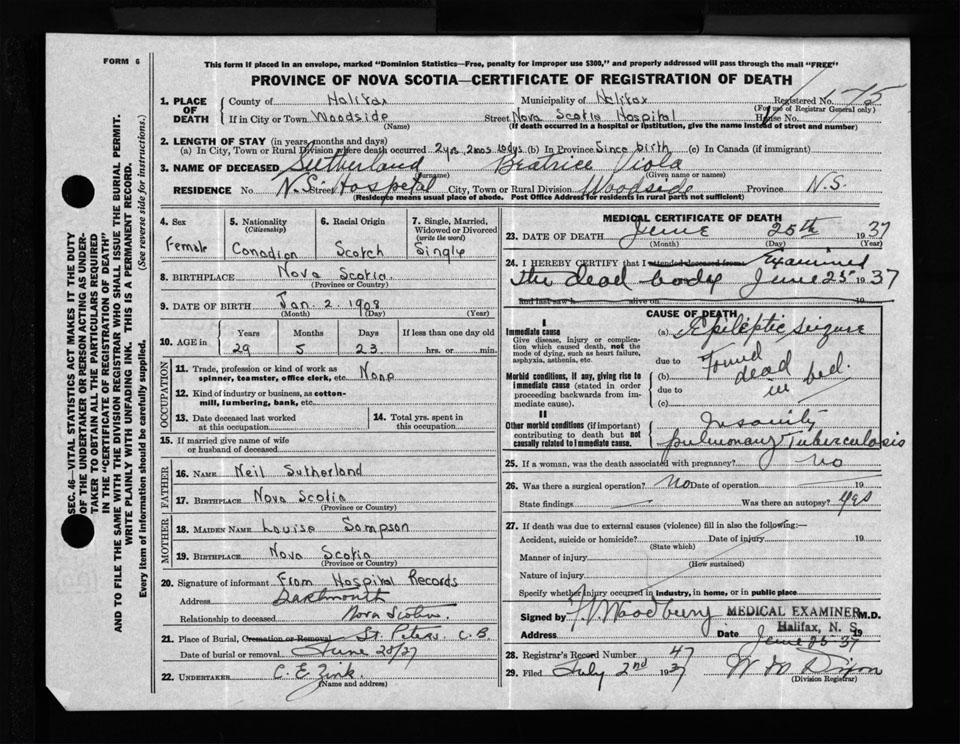 FORM 6
This form if placed in an envelope, marked "Dominion Statistics—Free, penalty for improper use $300," and properly addressed will pass through the mail "FREE"
PROVINCE OF NOVA SCOTIA—CERTIFICATE OF REGISTRATION OF DEATH
1. PLACE OF DEATH County of Halifax Municipality of Halifax Registered No. 175
(For use of Registrar General only)
If in City or Town Woodside Street Nova Scotia Hospital House No.
(Name) (If death occurred in a hospital or institution, give the name instead of street and number)
2. LENGTH OF STAY (in years, months and days)
(a) In City, Town or Rural Division where death occurred 2yrs 2mos 10dys (b) In Province Since birth (c) In Canada (if immigrant)
3. NAME OF DECEASED Sutherland Beatrice Viola
(Surname) (Given name or names)
RESIDENCE No. N.S. Street Hospital City, Town or Rural Division Woodside Province N.S.
(Residence means usual place of abode. Post Office Address for residents in rural parts not sufficient)
4. Sex Female
5. Nationality (Citizenship) Canadian
6. Racial Origin Scotch
7. Single, Married, Widowed or Divorced (write the word) Single
8. BIRTHPLACE Nova Scotia.
(Province or Country)
9. DATE OF BIRTH Jan. 2. 1908
(Month) (Day) (Year)
10. AGE in Years Months Days If less than one day old
29 5 23 hrs. or min.
OCCUPATION
11. Trade, profession or kind of work as spinner, teamster, office clerk, etc. None
12. Kind of industry or business, as cotton-mill, lumbering, bank, etc.
13. Date deceased last worked at this occupation
14. Total yrs. spent in this occupation
15. If married give name of wife or husband of deceased
FATHER
16. NAME Neil Sutherland
17. BIRTHPLACE Nova Scotia
(Province or Country)
MOTHER
18. MAIDEN NAME Louisa Sampson
19. BIRTHPLACE Nova Scotia
(Province or Country)
20. Signature of informant From Hospital Records
Address Dartmouth
Relationship to deceased Nova Scotia
21. Place of Burial, Cremation or Removal St. Peters C.B.
Date of burial or removal June 28/37
22. UNDERTAKER C. E. Zink.
(Name and address)
MEDICAL CERTIFICATE OF DEATH
23. DATE OF DEATH June 25th 1937
(Month) (Day) (Year)
24. I HEREBY CERTIFY that I attended deceased from Examined
the dead body June 25 1937
and last saw h alive on 19
CAUSE OF DEATH
I
Immediate cause
Give disease, injury or complication which caused death, not the mode of dying, such as heart failure, asphyxia, asthenia, etc.
(a) Epileptic seizure
due to
Morbid conditions, if any, giving rise to immediate cause (stated in order proceeding backwards from immediate cause).
(b) Found dead in bed.
due to
(c)
II
Other morbid conditions (if important) contributing to death but not causally related to immediate cause.
Insanity
pulmonary Tuberculosis
25. If a woman, was the death associated with pregnancy? no
26. Was there a surgical operation? no Date of operation 19
State findings Was there an autopsy? yes
27. If death was due to external causes (violence) fill in also the following:—
Accident, suicide or homicide? Date of injury 19
(State which)
Manner of injury
(How sustained)
Nature of injury
Specify whether injury occurred in industry, in home, or in public place
Signed by Woodbury MEDICAL EXAMINER M.D.
Halifax, N. S.
Address Date June 25 37 19
28. Registrar's Record Number 47
29. Filed July 2nd 1937 W M Dixon
(Division Registrar)
SEC. 46—VITAL STATISTICS ACT MAKES IT THE DUTY
OF THE UNDERTAKER OR PERSON ACTING AS UNDER-
TAKER TO OBTAIN ALL THE PARTICULARS REQUIRED
IN THE "CERTIFICATE OF REGISTRATION OF DEATH"
AND TO FILE THE SAME WITH THE DIVISION REGISTRAR WHO SHALL ISSUE THE BURIAL PERMIT.
WRITE PLAINLY WITH UNFADING INK. THIS IS A PERMANENT RECORD.
Every item of information should be carefully supplied. (See reverse side for instructions.)